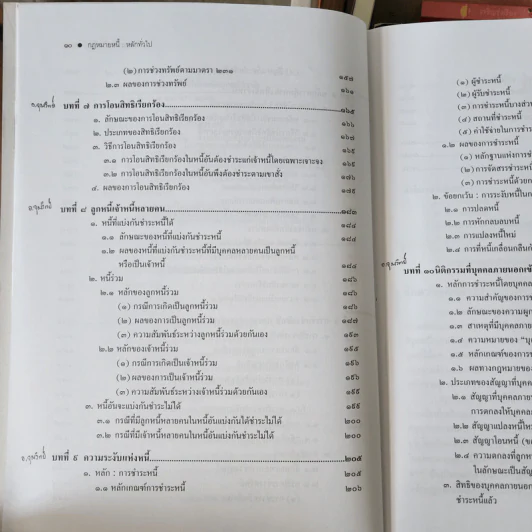 ๑๐ ● กฎหมายหนี้ : หลักทั่วไป
(๒) การช่วงทรัพย์ตามมาตรา ๒๓๑ ๑๕๘
๒.๓ ผลของการช่วงทรัพย์ ๑๖๑
บทที่ ๗ การโอนสิทธิเรียกร้อง ๑๖๕
๑. ลักษณะของการโอนสิทธิเรียกร้อง ๑๖๖
๒. ประเภทของสิทธิเรียกร้อง ๑๖๗
๓. วิธีการโอนสิทธิเรียกร้อง ๑๖๕
๓.๑ การโอนสิทธิเรียกร้องในหนี้อันต้องชำระแก่เจ้าหนี้โดยเฉพาะเจาะจง ๑๖๕
๓.๒ การโอนสิทธิเรียกร้องในหนี้อันพึงต้องชำระตามเขาสั่ง
๔. ผลของการโอนสิทธิเรียกร้อง ๑๗๕
บทที่ ๘ ลูกหนี้เจ้าหนี้หลายคน ๑๘๓
๑. หนี้ที่แบ่งกันชำระได้ ๑๘๔
๑.๑ ลักษณะของหนี้ที่แบ่งกันชำระได้ ๑๘๔
๑.๒ ผลของหนี้ที่แบ่งกันชำระได้ที่มีบุคคลหลายคนเป็นลูกหนี้
หรือเป็นเจ้าหนี้ ๑๘๔
๒. หนี้ร่วม ๑๘๖
๒.๑ หลักของลูกหนี้ร่วม ๑๘๖
(๑) กรณีการเกิดเป็นลูกหนี้ร่วม ๑๘๖
(๒) ผลของการเป็นลูกหนี้ร่วม ๑๘๗
(๓) ความสัมพันธ์ระหว่างลูกหนี้ร่วมด้วยกันเอง ๑๙๓
๒.๒ หลักของเจ้าหนี้ร่วม ๑๙๕
(๑) กรณีการเกิดเป็นเจ้าหนี้ร่วม ๑๙๖
(๒) ผลของการเป็นเจ้าหนี้ร่วม ๑๙๖
(๓) ความสัมพันธ์ระหว่างเจ้าหนี้ร่วมด้วยกันเอง ๑๙๙
๓. หนี้อันจะแบ่งกันชำระไม่ได้ ๑๙๙
๓.๑ กรณีที่มีลูกหนี้หลายคนในหนี้อันแบ่งกันได้ชำระไม่ได้ ๒๐๐
๓.๒ กรณีที่มีเจ้าหนี้หลายคนในหนี้อันแบ่งกันชำระไม่ได้ ๒๐๐
บทที่ ๙ ความระงับแห่งหนี้ ๒๐๕
๑. หลัก : การชำระหนี้ ๒๐๕
๑.๑ หลักเกณฑ์การชำระหนี้ ๒๐๖
(๑) ผู้ชำระหนี้
(๒) ผู้รับชำระหนี้
(๓) การชำระหนี้บางส่วน
(๔) สถานที่ชำระหนี้
(๕) ค่าใช้จ่ายในการชำระ
๑.๒ ผลของการชำระหนี้
(๑) หลักฐานแห่งการชำ
(๒) การจัดสรรชำระหนี้
(๓) การชำระหนี้ด้วย
๒. ข้อยกเว้น : การระงับหนี้ใน
๒.๑ การปลดหนี้
๒.๒ การหักกลบลบหนี้
๒.๓ การแปลงหนี้ใหม่
๒.๔ การที่หนี้เกลื่อนกลืนกัน
บทที่ ๑๐ นิติกรรมที่บุคคลภายนอกเข้า
๑. หลักการชำระหนี้โดยบุคคล
๑.๑ ความสำคัญของการ
๑.๒ ลักษณะของความผูก
๑.๓ สาเหตุที่มีบุคคลภาย
๑.๔ ความหมายของ “บุ
๑.๕ หลักเกณฑ์ของการช
๑.๖ ผลทางกฎหมายของ
๒. ประเภทของสัญญาที่บุคคล
๒.๑ สัญญาที่บุคคลภายนอก
การตกลงให้บุคคล
๒.๒ สัญญาแปลงหนี้ใหม่
๒.๓ สัญญาโอนหนี้ (ข
๒.๔ ความตกลงที่ลูกห
ในลักษณะเป็นสัญ
๓. สิทธิของบุคคลภายนอก
ชำระหนี้แล้ว